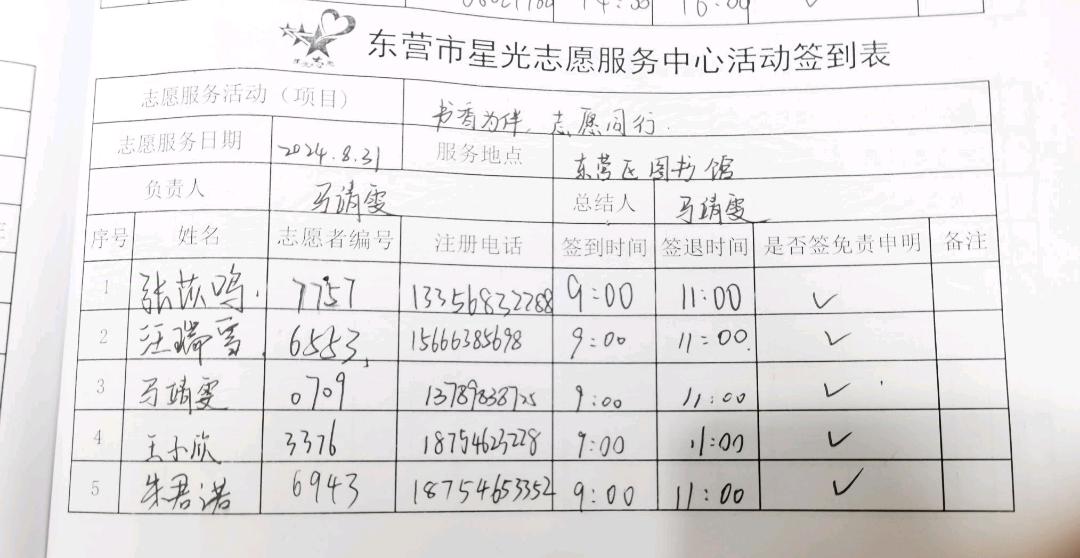 16:00
东营市星光志愿服务中心活动签到表
志愿服务活动（项目） 书香为伴，志愿同行.
志愿服务日期 2024.8.31 服务地点 东营区图书馆
负责人 马靖雯 总结人 马靖雯
序号 姓名 志愿者编号 注册电话 签到时间 签退时间 是否签免责申明 备注
1 7757 13356832288 9:00 11:00 ✓
2 汪瑞雪 6553 15666385698 9:00 11:00 ✓
3 马靖雯 0709 13789838725 9:00 11:00 ✓
4 王小欣 3376 18754623228 9:00 11:00 ✓
5 朱君诺 6943 18754653352 9:00 11:00 ✓